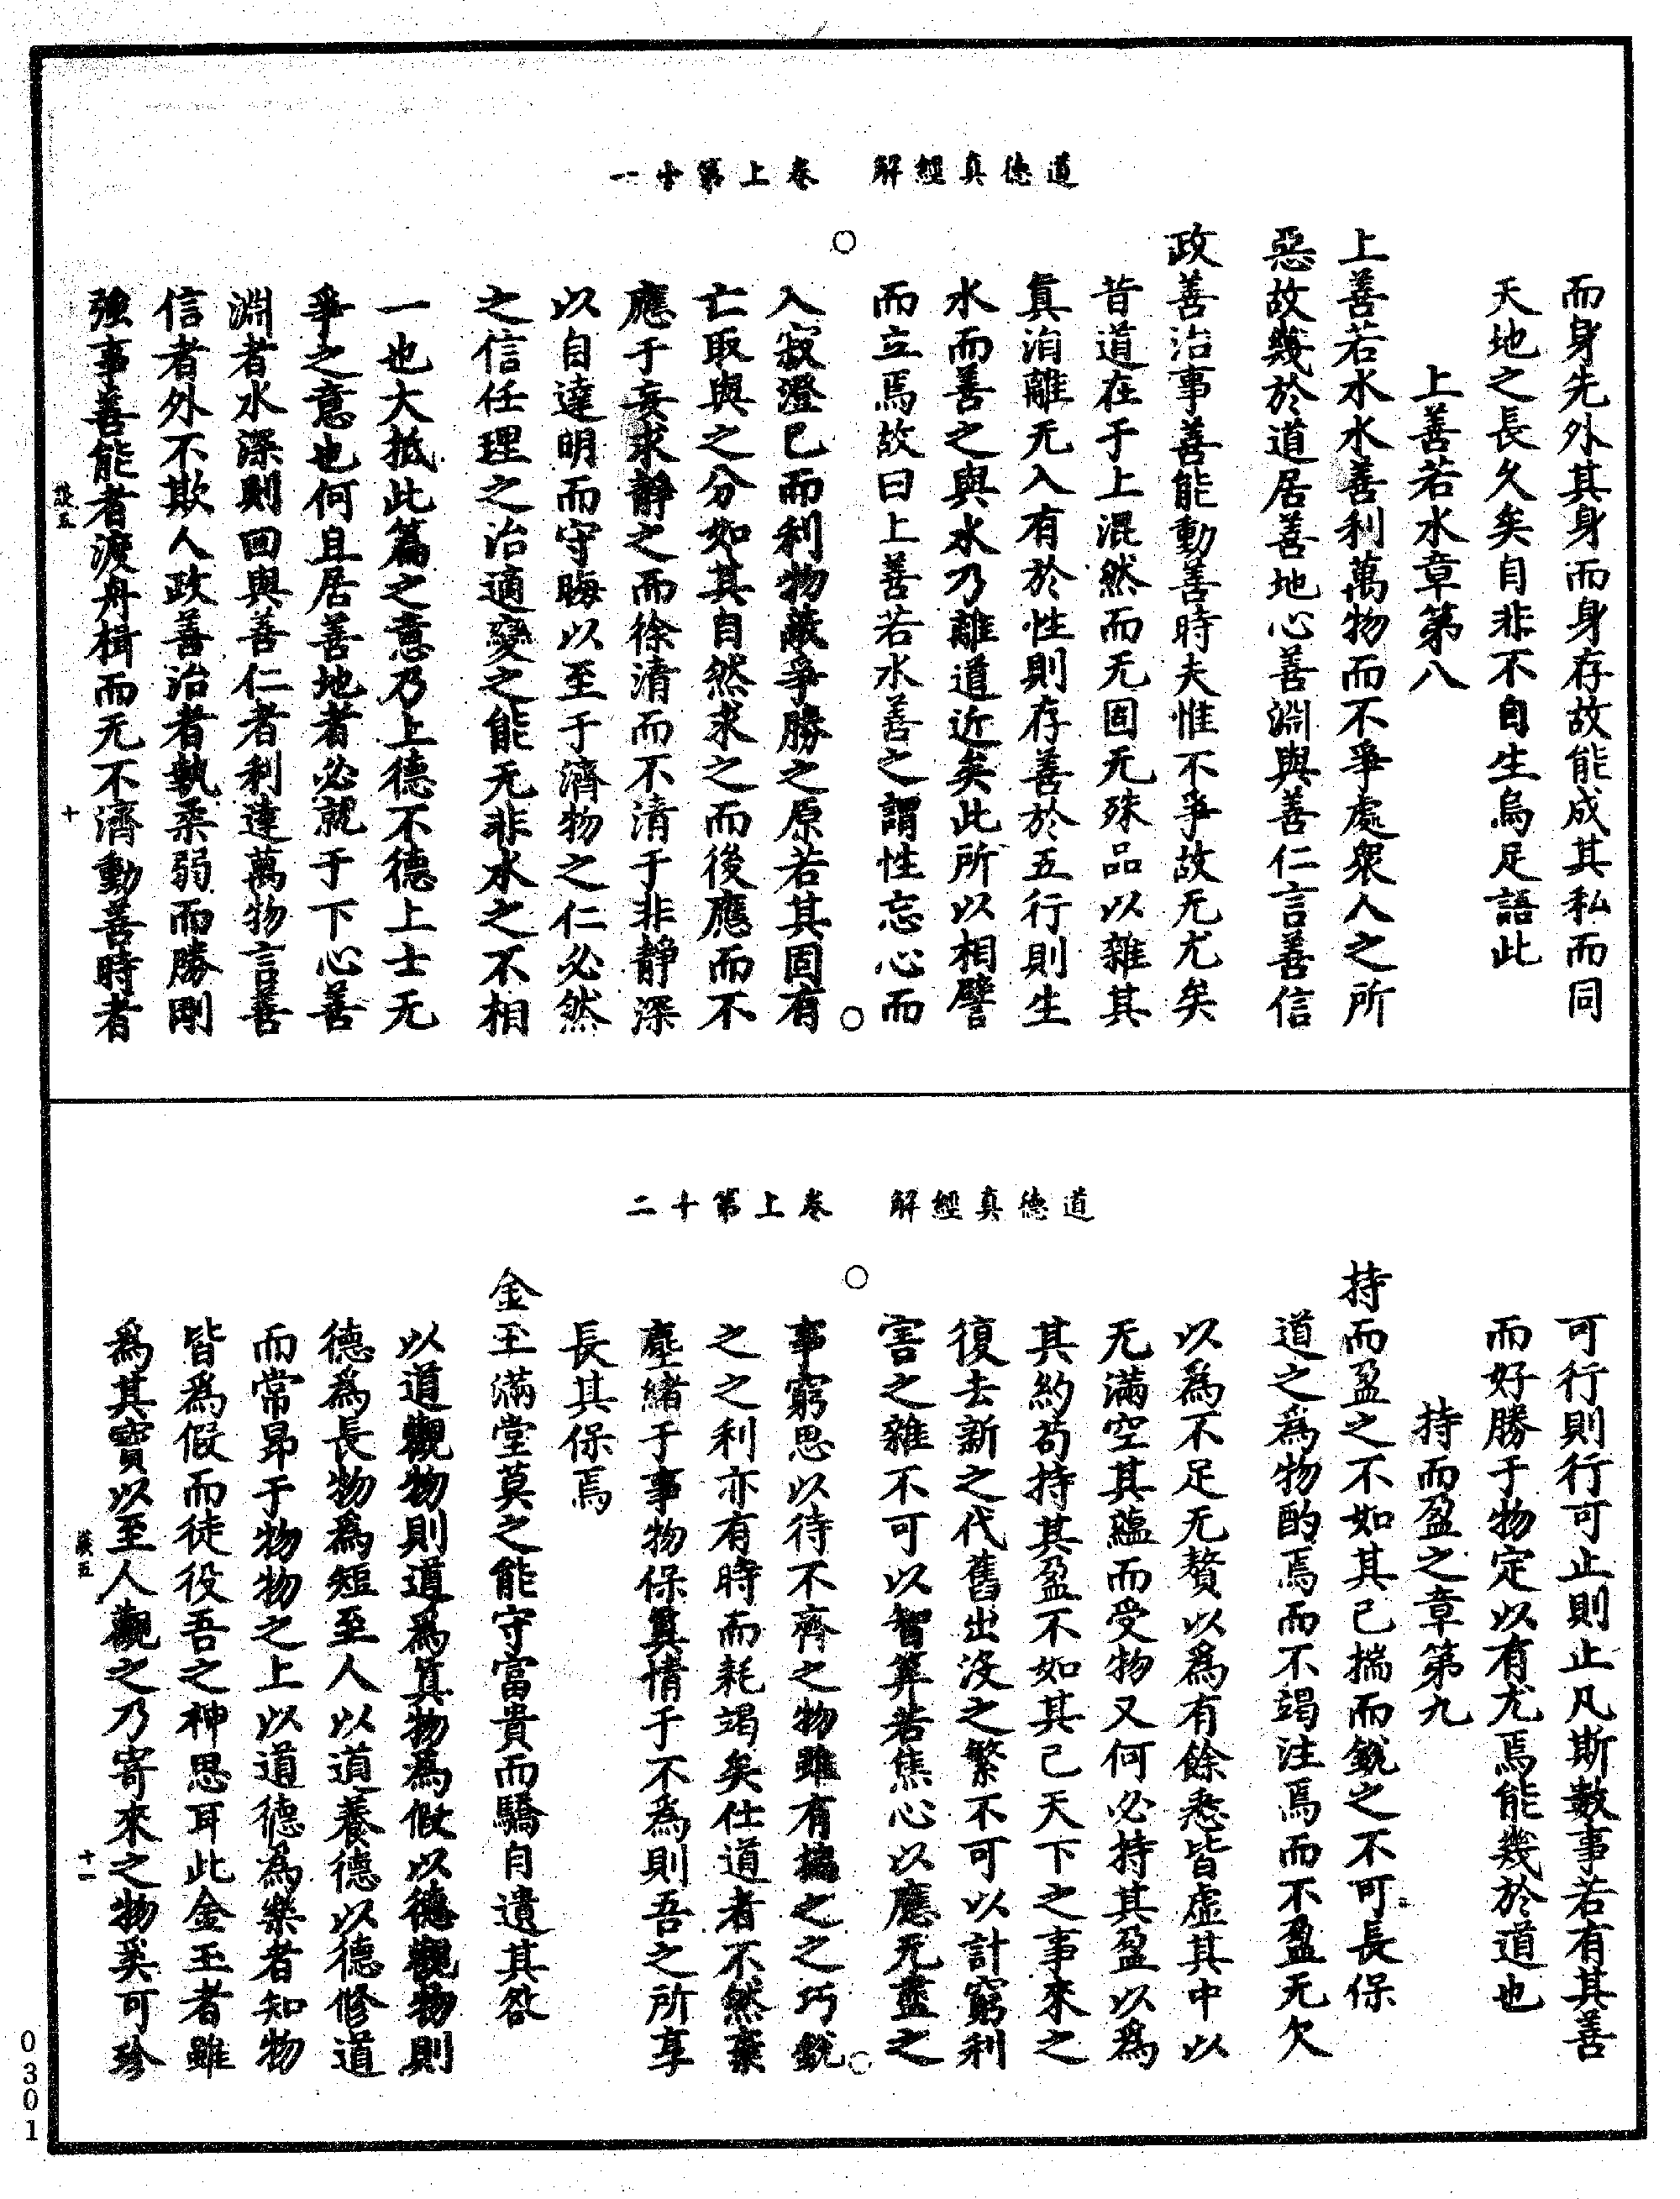 道德真經解　卷上第十一
而身先外其身而身存故能成其私而同
天地之長久矣自非不自生烏足語此
上善若水章第八
上善若水水善利萬物而不爭處衆人之所
惡故幾於道居善地心善淵與善仁言善信
政善治事善能動善時夫惟不爭故无尤矣
昔道在于上混然而无固无殊品以雜其
真洎離无入有於性則存善於五行則生
水而善之與水乃離道近矣此所以相譬
而立焉故曰上善若水善之謂性忘心而
入寂澄已而利物蔽爭勝之原若其固有
亡取與之分如其自然求之而後應而不
應于妄求靜之而徐清而不清于非靜深
以自達明而守晦以至于濟物之仁必然
之信任理之治適變之能无非水之不相
一也大抵此篇之意乃上德不德上士无
爭之意也何且居善地者必就于下心善
淵者水深則回與善仁者利達萬物言善
信者外不欺人政善治者執柔弱而勝剛
強事善能者渡舟楫而无不濟動善時者
十
道德真經解　卷上第十二
可行則行可止則止凡斯數事若有其善
而好勝于物定以有尤焉能幾於道也
持而盈之章第九
持而盈之不如其已揣而銳之不可長保
道之為物酌焉而不竭注焉而不盈无欠
以為不足无贅以為有餘悉皆虛其中以
无滿空其蘊而受物又何必持其盈以為
其約苟持其盈不如其已天下之事來之
復去新之代舊出沒之繁不可以計窮利
害之雜不可以智筭若焦心以應无盡之
事窮思以待不齊之物雖有揣之之巧銳
之之利亦有時而耗竭矣仕道者不然棄
塵緒于事物保真情于不為則吾之所享
長其保焉
金玉滿堂莫之能守富貴而驕自遺其咎
以道觀物則道為真物為假以德觀物則
德為長物為短至人以道養德以德修道
而常昂于物物之上以道德為樂者知物
皆為假而徒役吾之神思耳此金玉者雖
為其寶以至人觀之乃寄來之物奚可珍
十一
0301